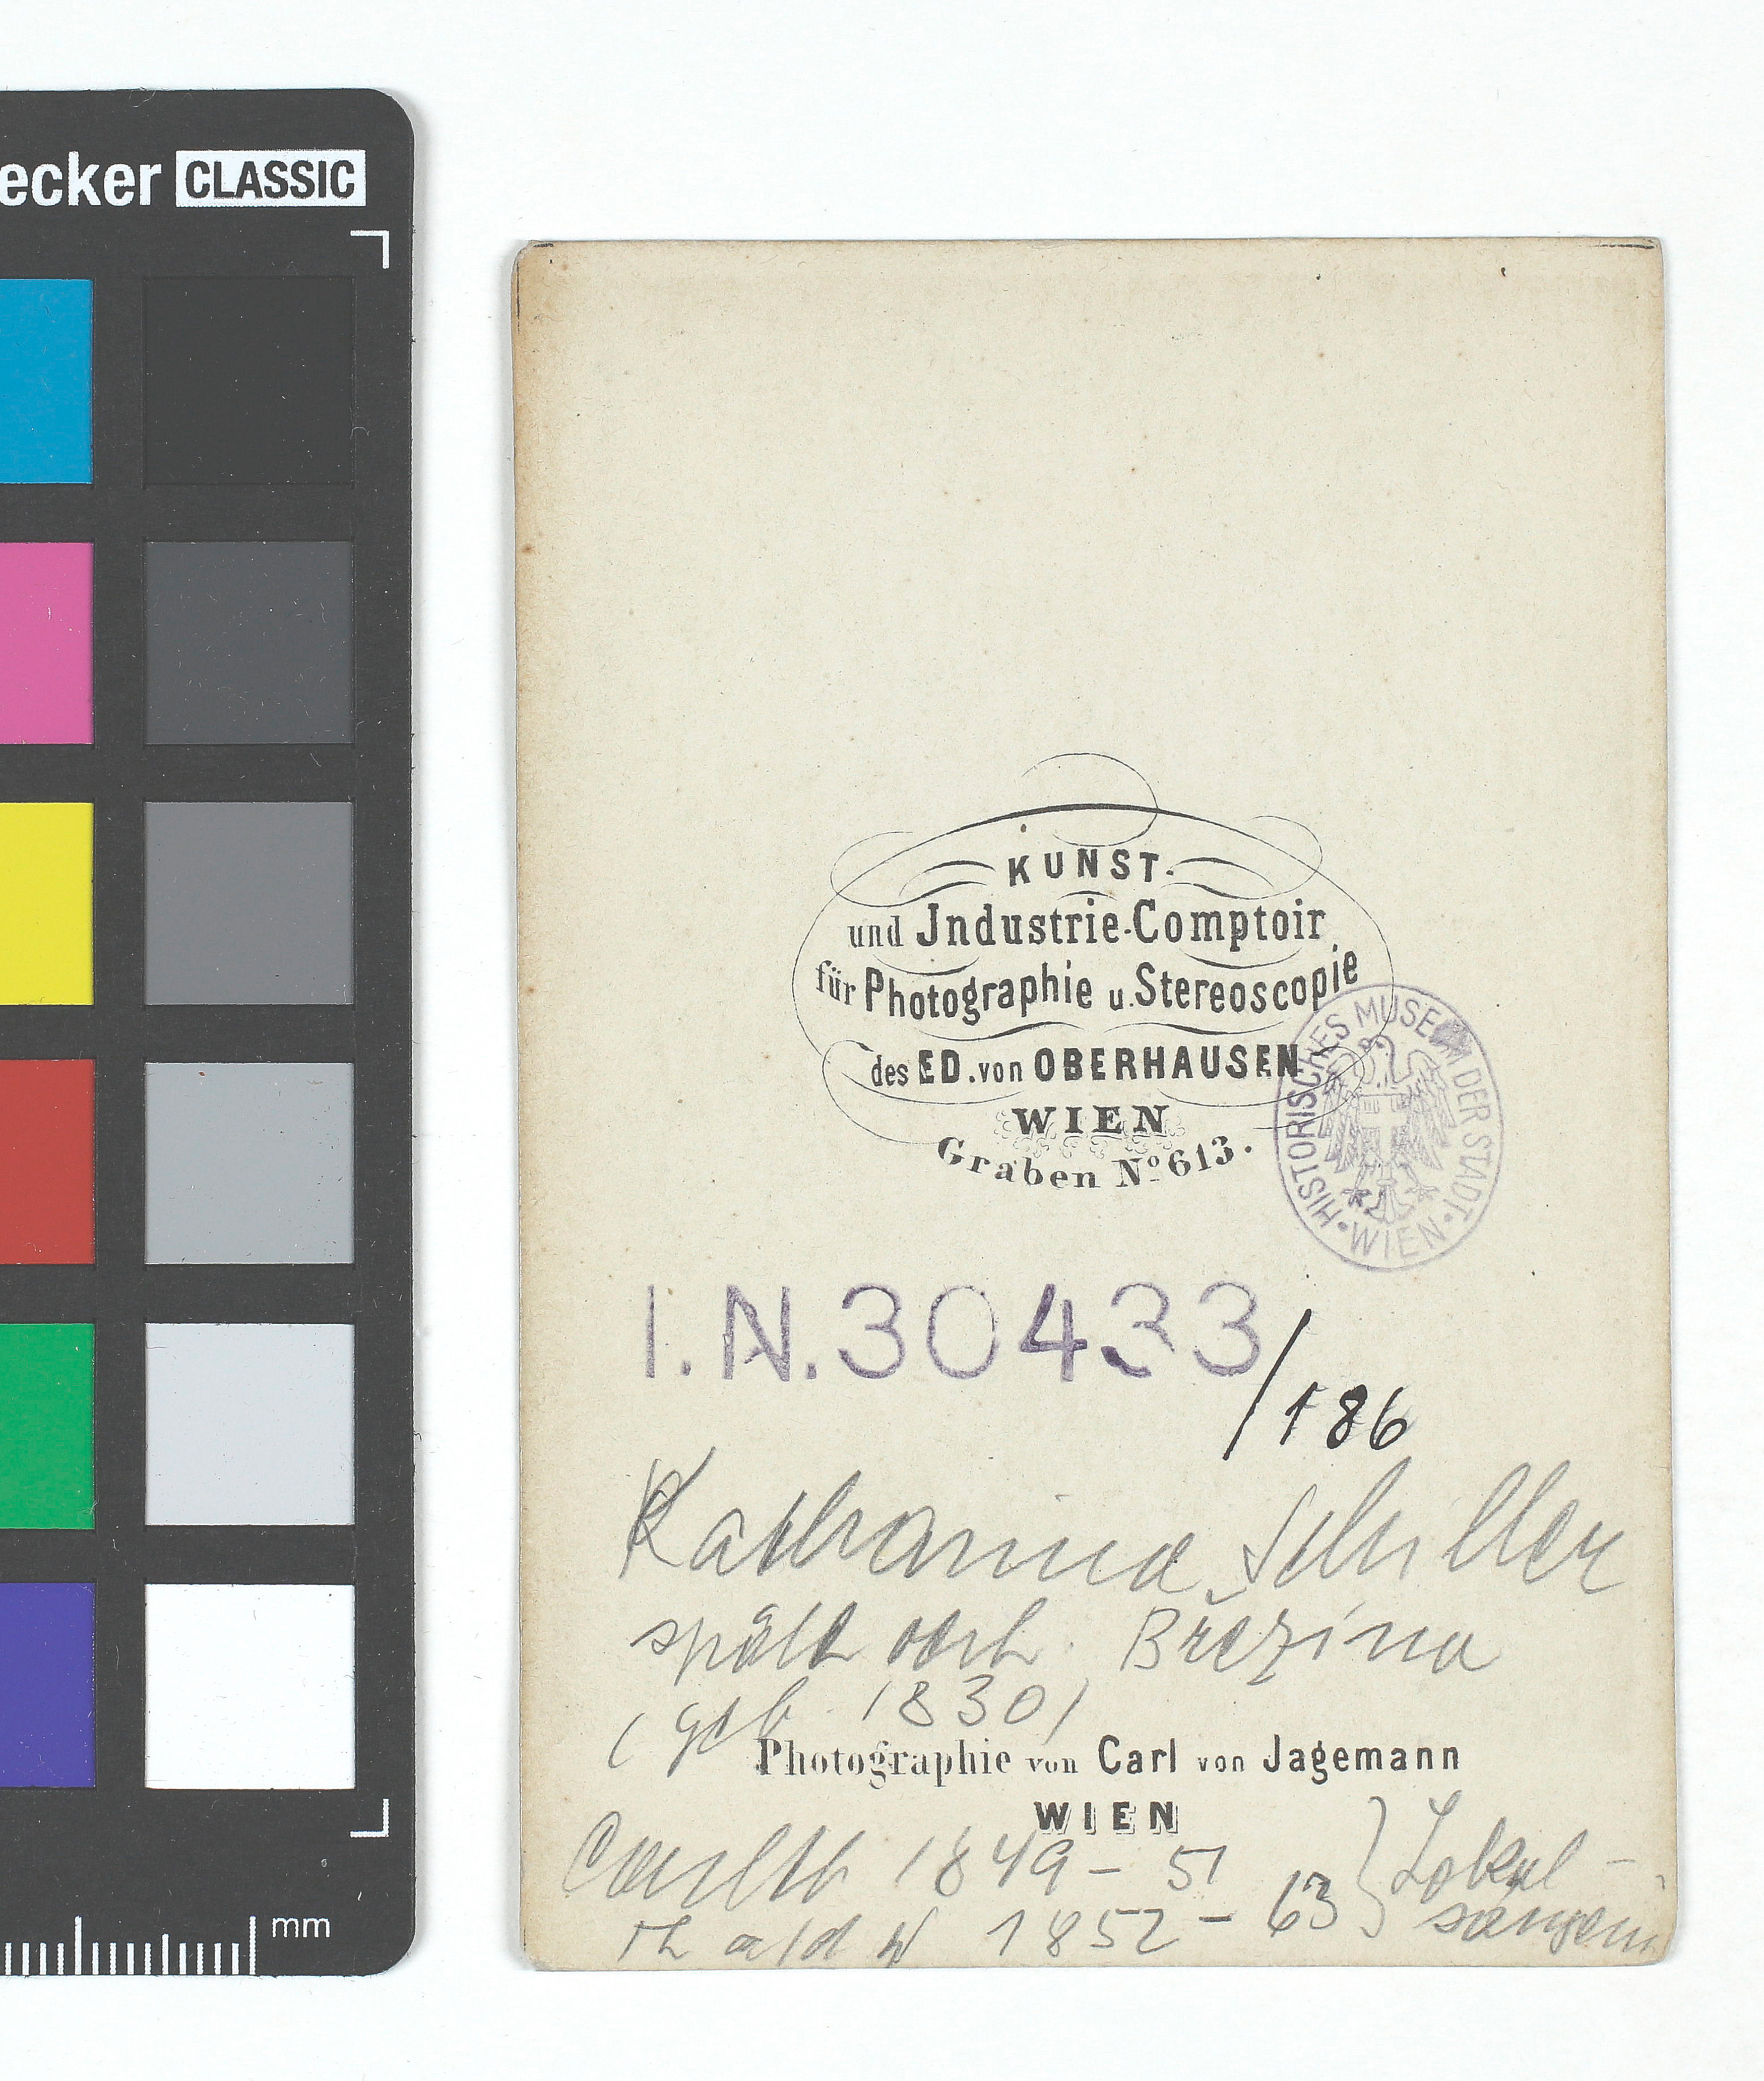 ecker CLASSIC
KUNST-
und Jndustrie-Comptoir
für Photographie u. Stereoscopie
des ED. von OBERHAUSEN
WIEN
Graben No 613.
HISTORISCHES MUSEUM DER STADT • WIEN •
I.N.30433/186
Katharina Schiller
später verh. Březina
(geb. 1830)
Photographie von Carl von Jagemann
WIEN
Carlth 1849 - 51
Th a/d W 1852 - 63 } Lokal-
sängerin
mm